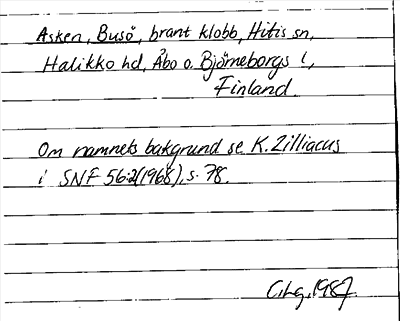 Asken, Busö, brant klobb, Hitis sn,
Halikko hd, Åbo o. Björneborgs l,
Finland.
Om namnets bakgrund se K. Zilliacus
i SNF 56:2(1968), s. 78.
C.Lg. 1987.